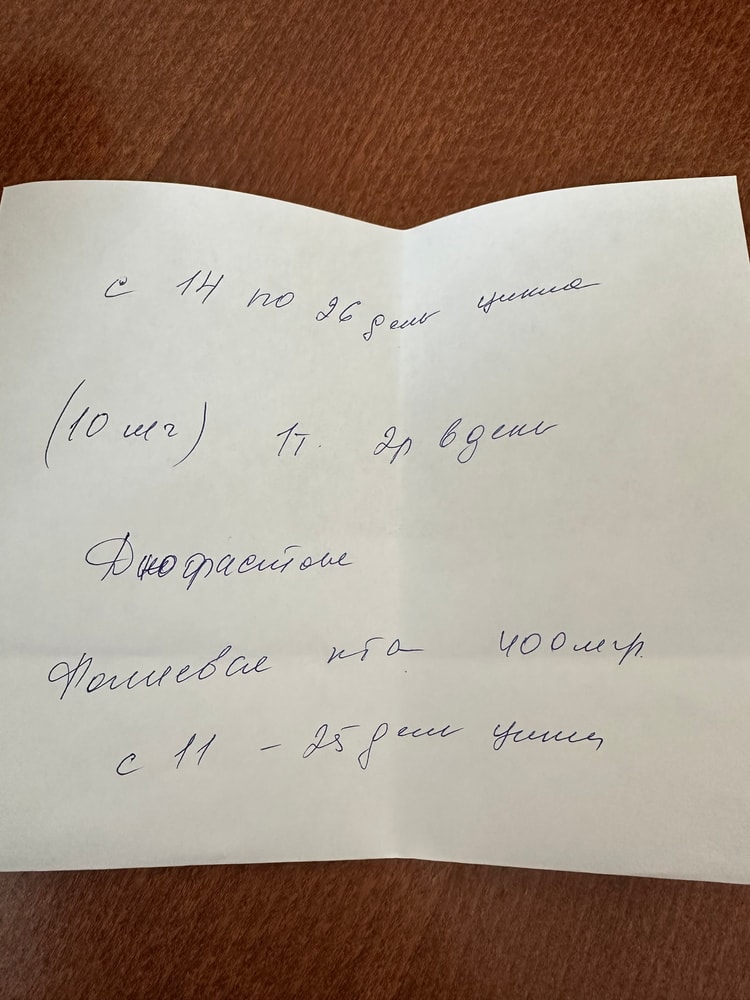 с 14 по 26 день цикла
(10 мг) 1т. 2р в день
Дюфастон
Фолиевая к-та 400 мгр.
с 11 - 25 день цикла